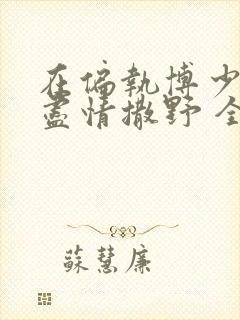 在偏執博少
盡情撒野 全
蘇慧廉